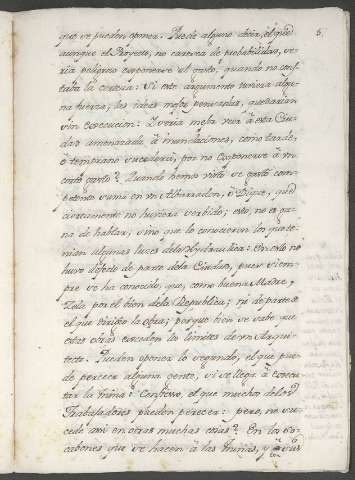 5.
que se pueden oponer. Puede alguno decir, el que
aunque el Proyecto, no carezca de probabilidad, se
ria peligroso exponerse al gasto, quando no cons
taba la certeza: Si este argumento tuviera algu
na fuerza, las ideas mejor pensadas, quedarian
sin execucion: Y seria mejor vivir à esta Ciu
dad amenazada à inundaciones, como tarde,
ò temprano sucederà, por no exponerse à un
corto gasto? Quando hemos visto se gastò com
petente suma en un Albarradon, ò Dique, que
ciertamente no huviera servido; esto, no es ga
na de hablar, sino que lo conocieron los que te
nian algunas luzes de la Hydraulica: En esto no
huvo defecto de parte de la Ciudad, pues siem
pre se ha conocido, que, como buena Madre,
Zela por el bien de la Republica; ni de parte de
el que dirigio la obra; porque bien se sabe que
estas obras exceden los limites de un Arqui
tecto. Pueden oponer lo segundo, el que pue
de perecer alguna gente, si se llega à execu
tar la mina? Confieso, el que muchos de los
Trabajadores pueden perecer: pero, no su
cede assi en otras muchas cosas? En los So
cabones que se hacen à las Minas, y à sus